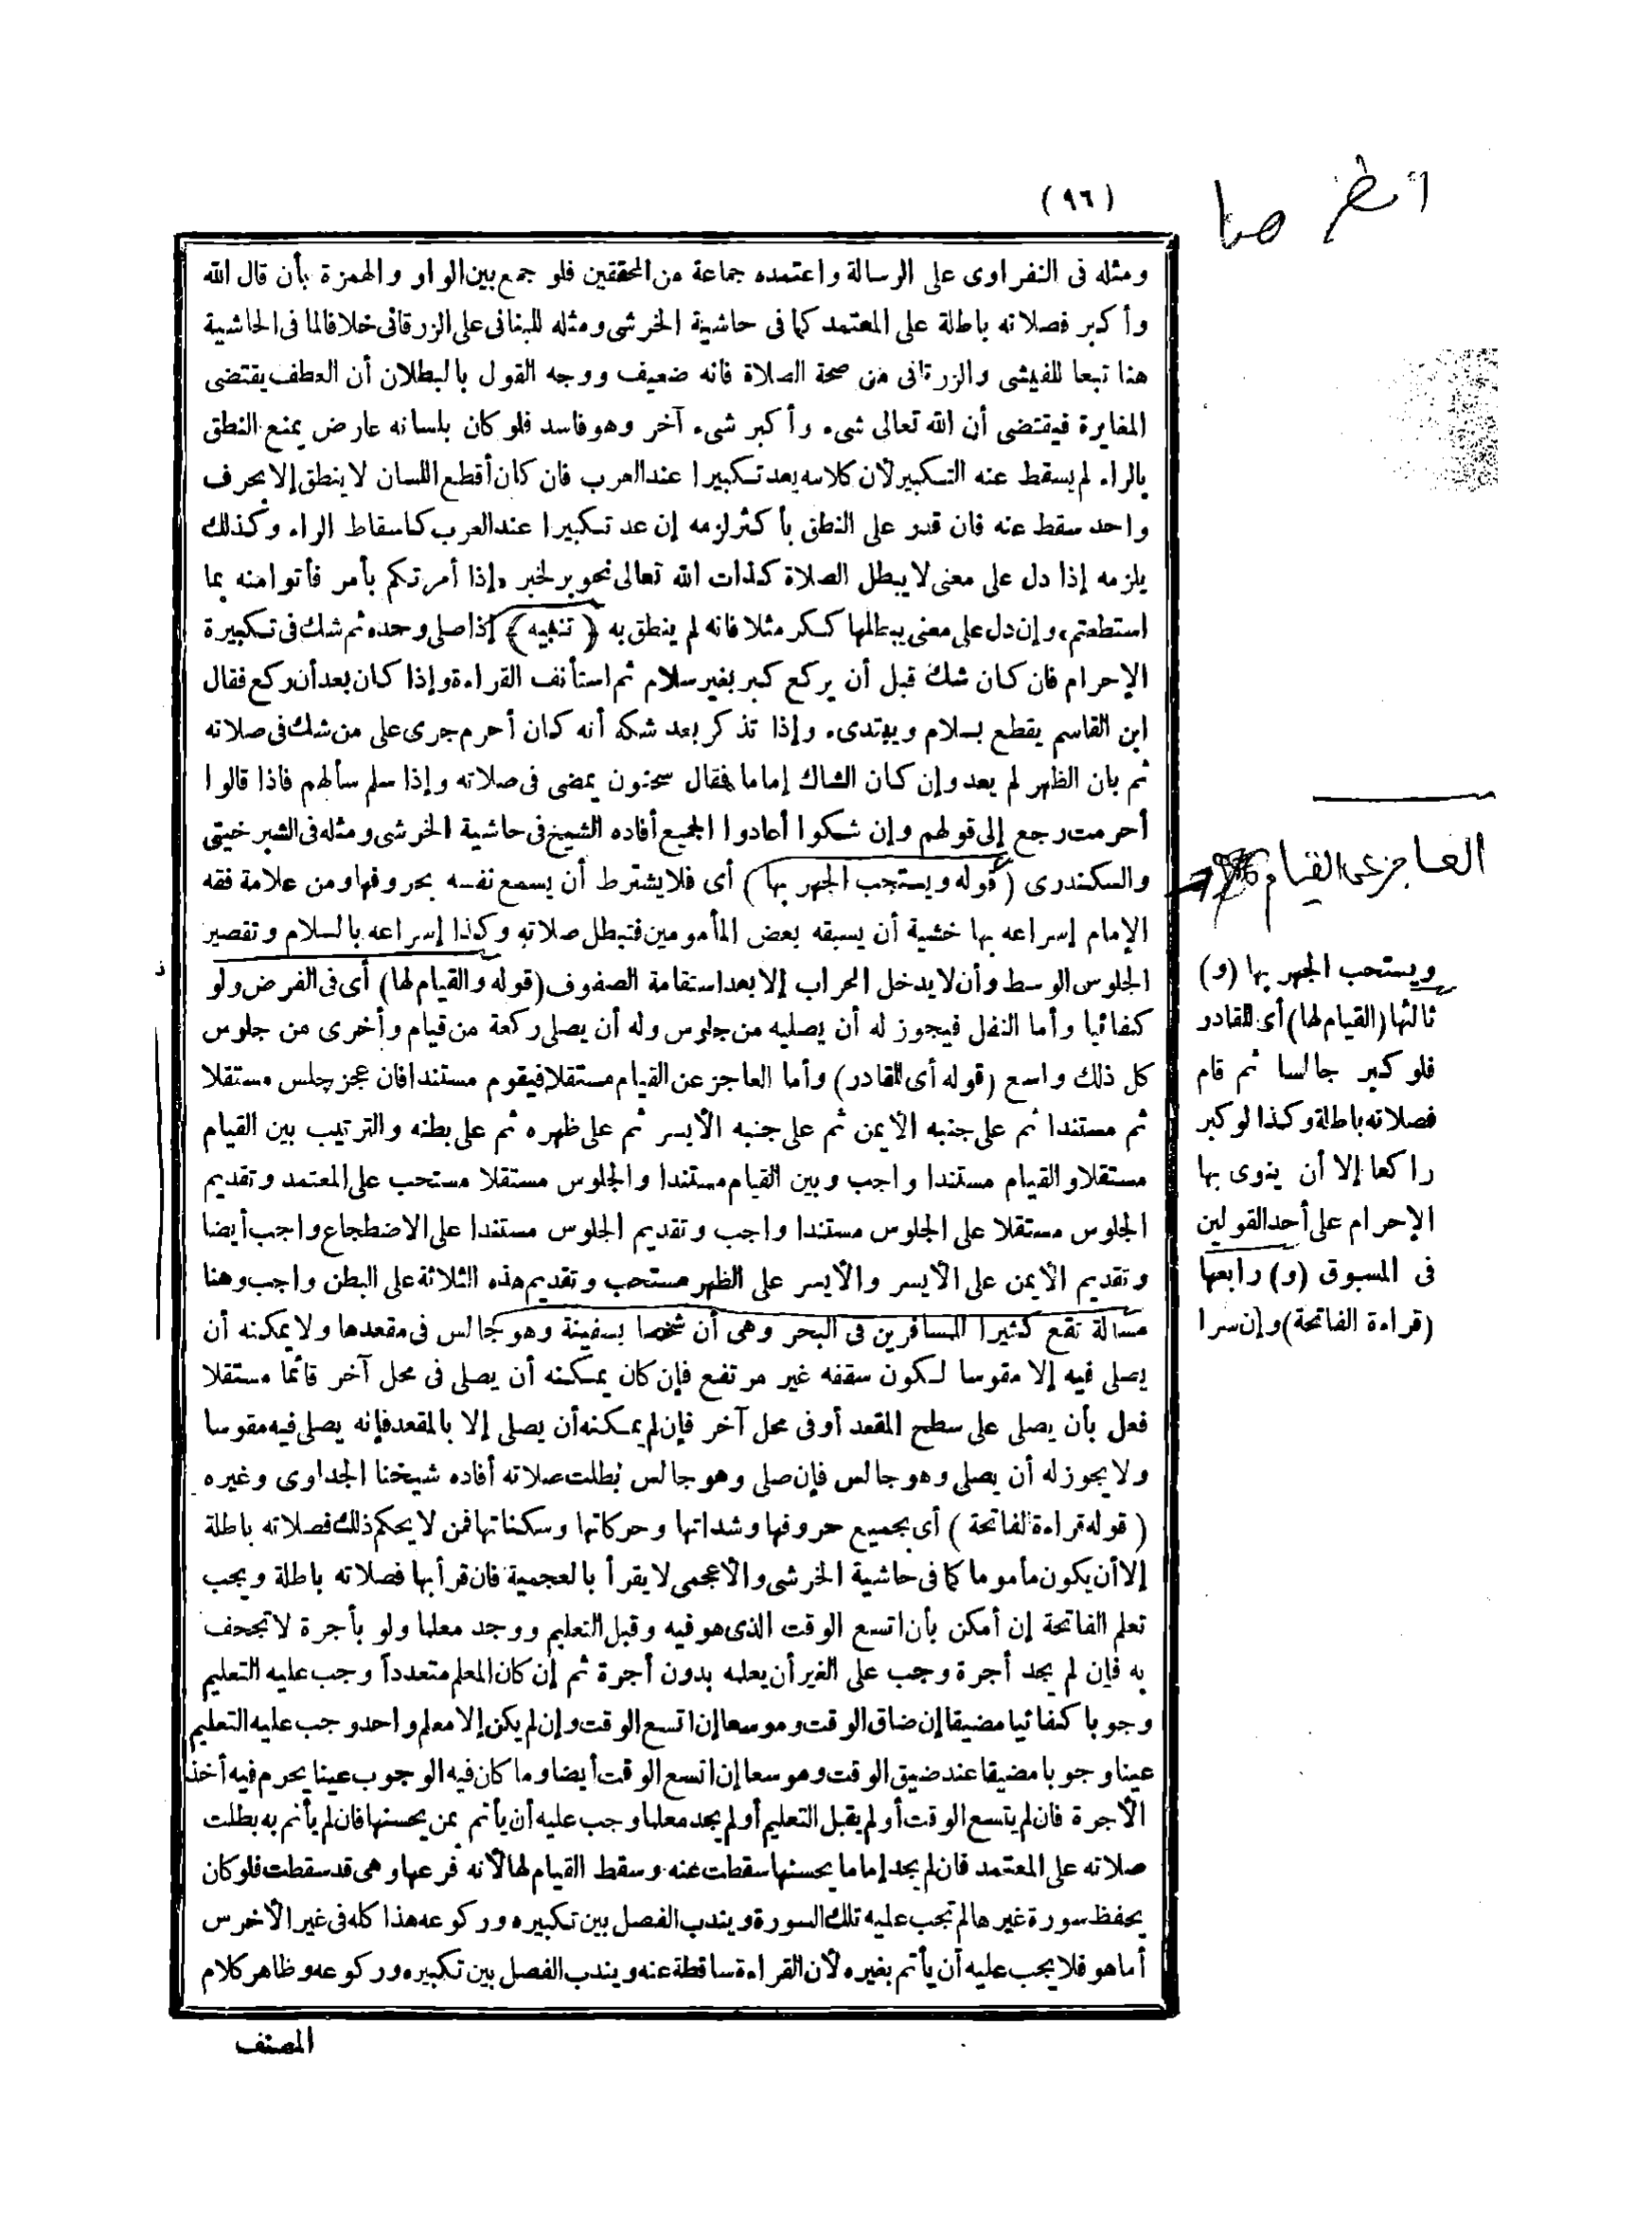 (٩٦)
انظر هنا
ومثله فى النفراوى على الرسالة واعتمده جماعة من المحققين فلو جمع بين الواو والهمزة بأن قال الله
وأكبر فصلاته باطلة على المعتمد كما فى حاشية الخرشى ومثله للبنانى على الزرقانى خلافا لما فى الحاشية
هنا تبعا للفيشى والزرقانى من صحة الصلاة فانه ضعيف ووجه القول بالبطلان أن العطف يقتضى
المغايرة فيقتضى أن الله تعالى شىء وأكبر شىء آخر وهو فاسد فلو كان بلسانه عارض يمنع النطق
بالراء لم يسقط عنه التكبير لأن كلامه يعد تكبيرا عند العرب فان كان أقطع اللسان لا ينطق إلا بحرف
واحد سقط عنه فان قدر على النطق بأكثر لزمه إن عد تكبيرا عند العرب كاسقاط الراء وكذلك
يلزمه إذا دل على معنى لا يبطل الصلاة كذات الله تعالى نحو بر لخبر «إذا أمرتكم بأمر فأتوا منه بما
استطعتم» وإن دل على معنى يبطلها ككر مثلا فانه لم ينطق به ﴿ تنبيه ﴾ إذا صلى وحده ثم شك فى تكبيرة
الإحرام فان كان شك قبل أن يركع كبر بغير سلام ثم استأنف القراءة وإذا كان بعد أن ركع فقال
ابن القاسم يقطع بسلام ويبتدىء وإذا تذكر بعد شكه أنه كان أحرم جرى على من شك فى صلاته
ثم بان الطهر لم يعد وإن كان الشاك إماما فقال سحنون يمضى فى صلاته وإذا سلم سألهم فاذا قالوا
أحرمت رجع إلى قولهم وإن شكوا أعادوا الجميع أفاده الشيخ فى حاشية الخرشى ومثله فى الشبرخيتى
والسكندرى (قوله ويستحب الجهر بها) أى فلا يشترط أن يسمع نفسه بحروفها ومن علامة فقه
الإمام إسراعه بها خشية أن يسبقه بعض المأمومين فتبطل صلاته وكذا إسراعه بالسلام وتقصير
الجلوس الوسط وأن لا يدخل المحراب إلا بعد استقامة الصفوف (قوله والقيام لها) أى فى الفرض ولو
كفائيا وأما النفل فيجوز له أن يصليه من جلوس وله أن يصلى ركعة من قيام وأخرى من جلوس
كل ذلك واسع (قوله أى للقادر) وأما العاجز عن القيام مستقلا فيقوم مستندا فان عجز جلس مستقلا
ثم مستندا ثم على جنبه الأيمن ثم على جنبه الأيسر ثم على ظهره ثم على بطنه والترتيب بين القيام
مستقلا والقيام مستندا واجب وبين القيام مستندا والجلوس مستقلا مستحب على المعتمد وتقديم
الجلوس مستقلا على الجلوس مستندا واجب وتقديم الجلوس مستندا على الاضطجاع واجب أيضا
وتقديم الأيمن على الأيسر والأيسر على الظهر مستحب وتقديم هذه الثلاثة على البطن واجب وهنا
مسألة تقع كثيرا للمسافرين فى البحر وهى أن شخصا بسفينة وهو جالس فى مقعدها ولا يمكنه أن
يصلى فيه إلا مقوسا لكون سقفه غير مرتفع فإن كان يمكنه أن يصلى فى محل آخر قائما مستقلا
فعل بأن يصلى على سطح المقعد أو فى محل آخر فإن لم يمكنه أن يصلى إلا بالمقعد فإنه يصلى فيه مقوسا
ولا يجوز له أن يصلى وهو جالس فإن صلى وهو جالس بطلت صلاته أفاده شيخنا الجداوى وغيره
(قوله قراءة الفاتحة) أى بجميع حروفها وشداتها وحركاتها وسكناتها فمن لا يحكم ذلك فصلاته باطلة
إلا أن يكون مأموما كما فى حاشية الخرشى والأعجمى لا يقرأ بالعجمية فان قرأ بها فصلاته باطلة ويجب
تعلم الفاتحة إن أمكن بأن اتسع الوقت الذى هو فيه وقبل التعليم ووجد معلما ولو بأجرة لا تجحف
به فإن لم يجد أجرة وجب على الغير أن يعلمه بدون أجرة ثم إن كان المعلم متعدداً وجب عليه التعليم
وجوبا كفائيا مضيقا إن ضاق الوقت وموسعا إن اتسع الوقت وإن لم يكن إلا معلم واحد وجب عليه التعليم
عينا وجوبا مضيقا عند ضيق الوقت وموسعا إن اتسع الوقت أيضا وما كان فيه الوجوب عينا يحرم فيه أخذ
الأجرة فان لم يتسع الوقت أو لم يقبل التعليم أو لم يجد معلما وجب عليه أن يأتم بمن يحسنها فان لم يأتم به بطلت
صلاته على المعتمد فان لم يجد إماما يحسنها سقطت عنه وسقط القيام لها لأنه فرعها وهى قد سقطت فلو كان
يحفظ سورة غيرها لم تجب عليه تلك السورة ويندب الفصل بين تكبيره وركوعه هذا كله فى غير الأخرس
أما هو فلا يجب عليه أن يأتم بغيره لأن القراءة ساقطة عنه ويندب الفصل بين تكبيره وركوعه وظاهر كلام
المصنف
العاجز عن القيام
ويستحب الجهر بها (و)
ثالثها (القيام لها) أى للقادر
فلو كبر جالسا ثم قام
فصلاته باطلة وكذا لو كبر
راكعا إلا أن ينوى بها
الإحرام على أحد القولين
فى المسبوق (و) رابعها
(قراءة الفاتحة) وإن سرا